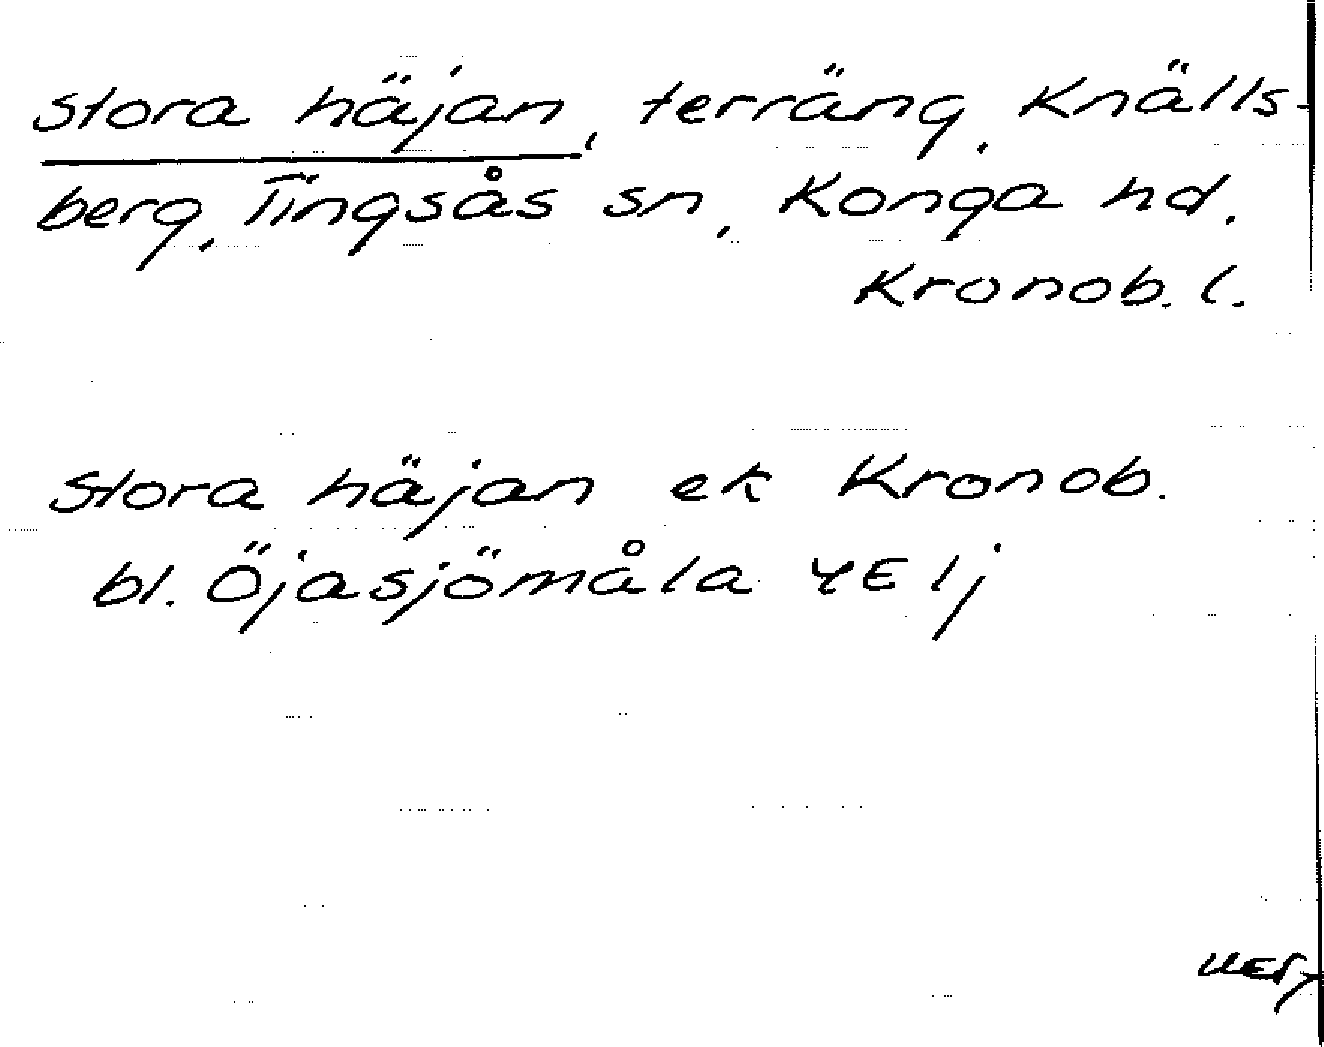 stora häjan, terräng, Knälls-
berg, Tingsås sn, Konga hd.
Kronob. l.
stora häjan ek Kronob.
bl. Öjasjömåla 4E 1j